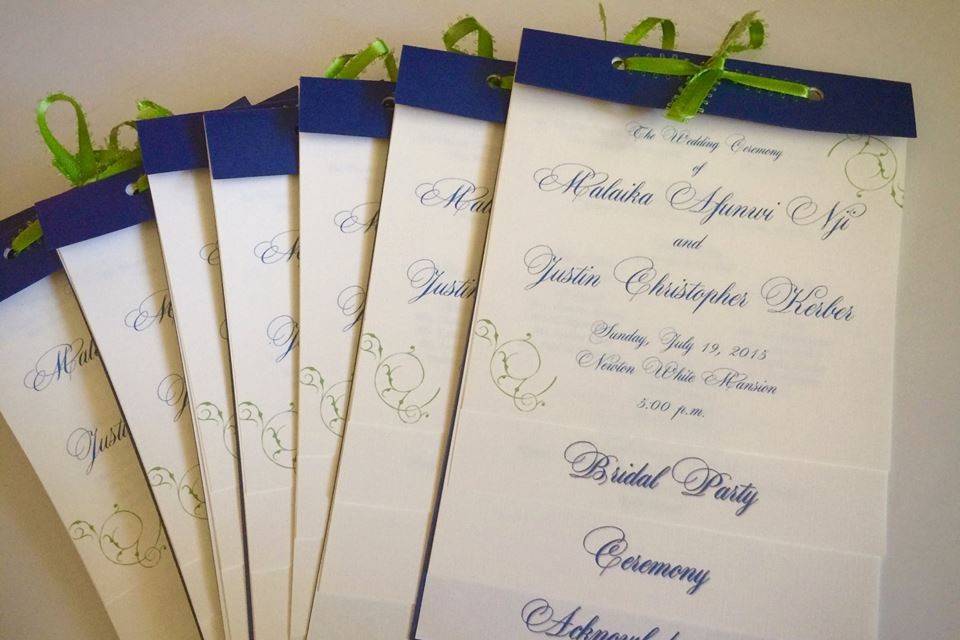 The Wedding Ceremony
of
Malaika Afunwi Nji
and
Justin Christopher Kerber
Sunday, July 19, 2015
Newton White Mansion
5:00 p.m.
Bridal Party
Ceremony
Mala
Justin
Mala
Justi